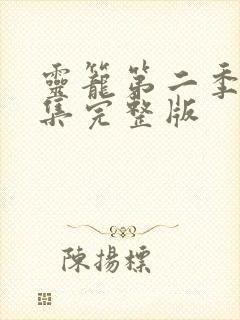 靈籠第二季
集完整版
陳揚標